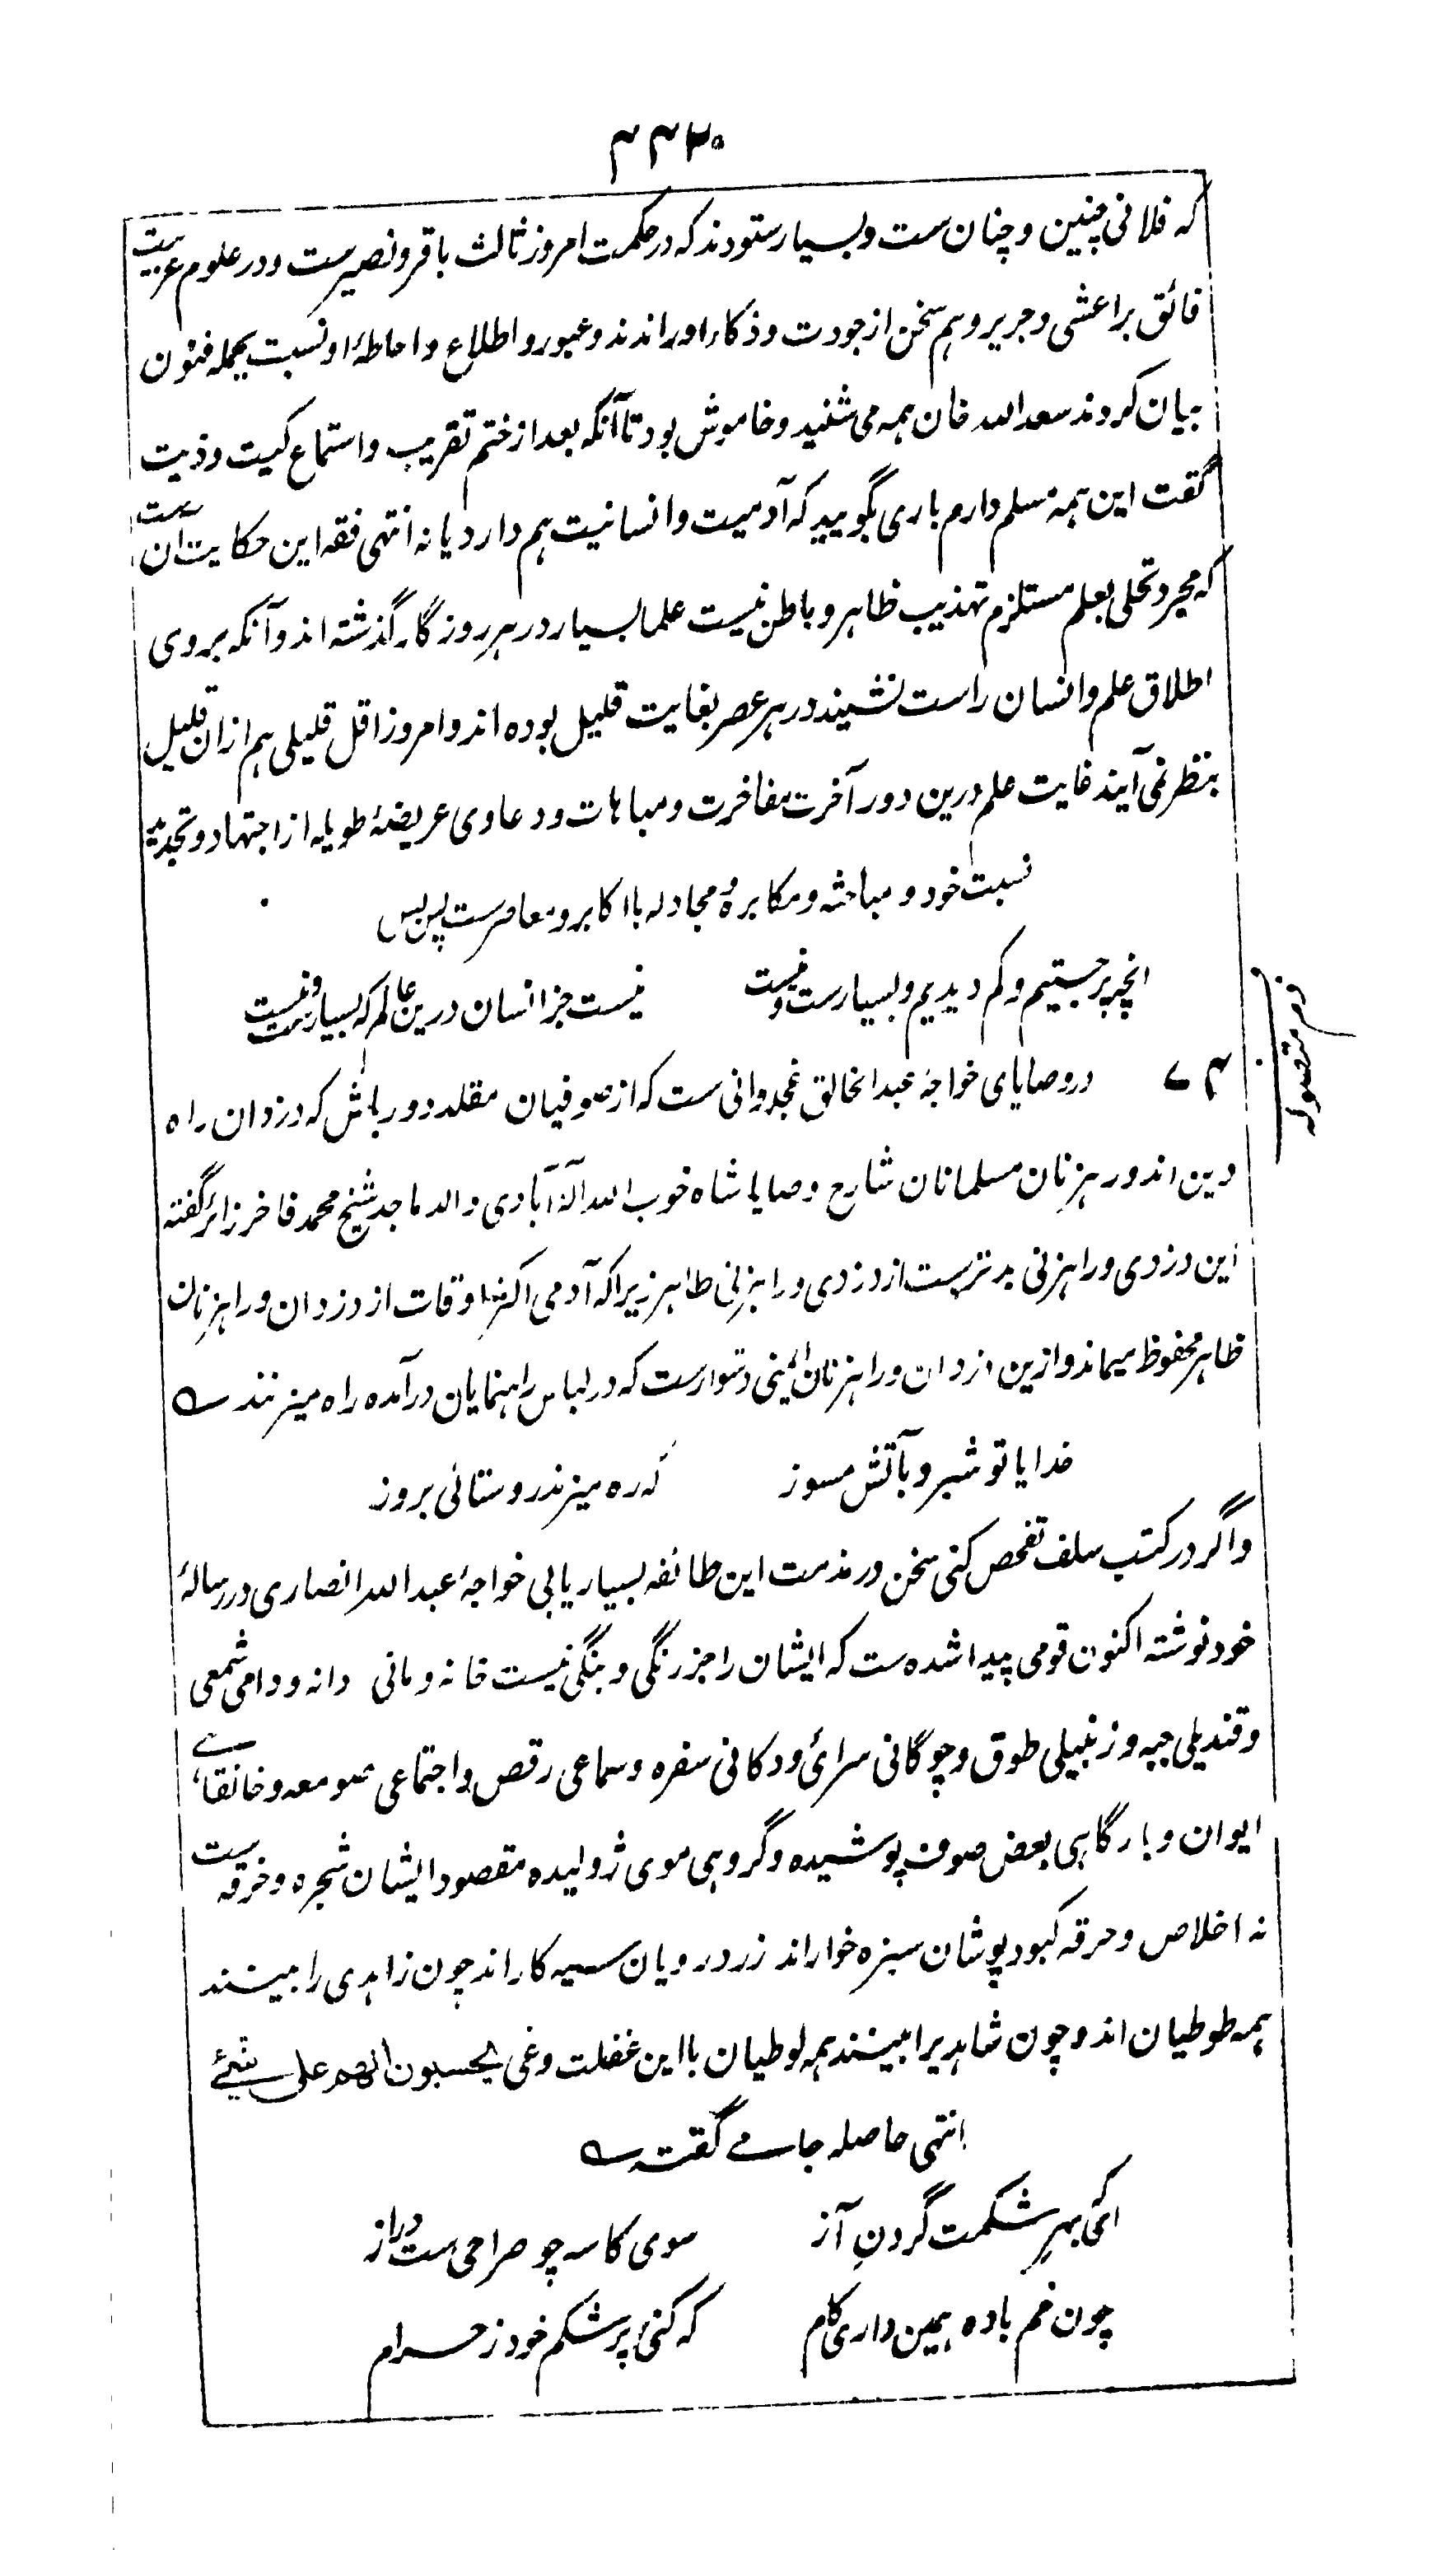 که فلانی چنین و چنان ست و بسیار ستودند که در حکمت امروز ثالث باقر و نصیرست و در علوم عربیت
فائق بر اعشی و جریر و هم سخن از جودت و ذکاء او راندند و عبور و اطلاع و احاطهٔ او نسبت بجمله فنون
بیان کردند سعد الله خان همه می شنید و خاموش بود تا آنکه بعد از ختم تقریب و استماع کیت و ذیت
گفت این همه مسلم دارم باری بگویید که آدمیت و انسانیت هم دارد یا نه انتهی فقه این حکایت آن ست
که مجرد تحلی بعلم مستلزم تهذیب ظاهر و باطن نیست علما بسیار در هر روزگار گذشته اند و آنکه بروی
اطلاق علم و انسان راست نشیند در هر عصر بغایت قلیل بوده اند و امروز اقل قلیلی هم ازان قلیل
بنظر نمی آیند غایت علم درین دور آخرت مفاخرت و مباهات و دعاوی عریضهٔ طویله از اجتهاد و تجدید
نسبت خود و مباحثه و مکابره و مجادله با اکابر و معاصرست پس بس
انچه پر جستیم و کم دیدیم و بسیارست و نیست
نیست جز انسان درین عالم که بسیارست و نیست
ذم متصوفه
۷۴ در وصایای خواجه عبد الخالق غجدوانی ست که از صوفیان مقلد دور باش که دزدان راه
دین اند و رهزنان مسلمانان شارح وصایا شاه خوب الله اله آبادی والد ماجد شیخ محمد فاخر زائر گفته
این دزدی و راهزنی بدترست از دزدی و راهزنی ظاهر زیرا که آدمی اکثر اوقات از دزدان و راهزنان
ظاهر محفوظ میماند و ازین دزدان و راهزنان ایمنی دشوارست که در لباس راهنمایان درآمده راه میزنند
خدایا تو شبرو بآتش مسوز
که ره میزند روستائی بروز
و اگر در کتب سلف تفحص کنی سخن در مذمت این طائفه بسیار یابی خواجه عبد الله انصاری در رسالهٔ
خود نوشته اکنون قومی پیدا شده ست که ایشان را جز رنگی و بنگی نیست خانه و مانی دانه و دامی شمعی
و قندیلی جبه و زنبیلی طوق و چوگانی سرائی و دکانی سفره و سماعی رقص و اجتماعی صومعه و خانقاهی
ایوان و بارگاهی بعض صوف پوشیده و گروهی موی ژولیده مقصود ایشان شجره و خرقه ست
نه اخلاص و حرقه کبود پوشان سبزه خوار اند زرد رویان سیه کار اند چون زاهدی را بینند
همه طوطیان اند و چون شاهدی را بینند همه لوطیان با این غفلت و غی یحسبون انهم علی شیء
انتهی حاصله جامی گفته
ای که بهر شکمت گردن آز
سوی کاسه چو صراحی ست دراز
چون خم باده همین داری کام
که کنی پر شکم خود ز حرام